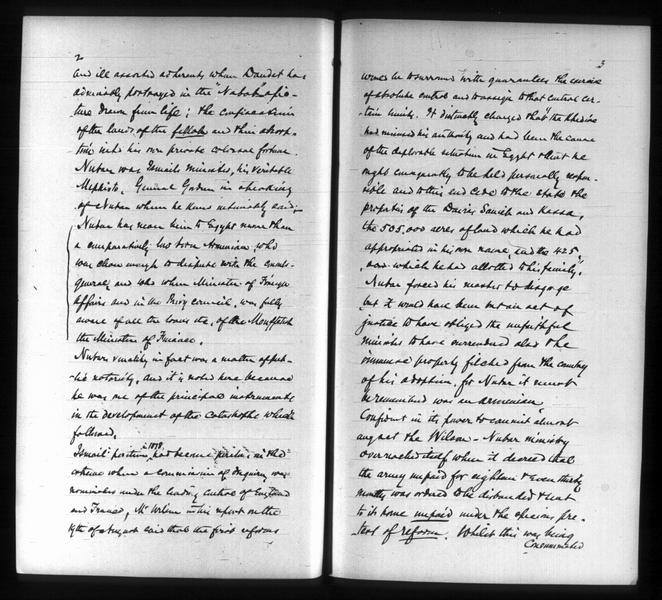 2
and ill assorted adherents whom Daudet has
admirably portrayed in the "Nabab" a pic-
ture drawn from life; the confiscation
of the lands of the fellah and their absorp-
tion into his own private colossal fortune.
Nubar was Ismails minister, his veritable
Mephisto. General Gordon in speaking
of Nubar whom he knew intimately said;
Nubar has been him to Egypt more than
a comparatively low born Armenian who
was clever enough to dispute with the
general, and who when Minister of Foreign
Affairs and in the Privy council, was fully
aware of all the loans etc, of the Mouffetish
the Minister of Finance.
Nubar's venality in fact was a matter of pub-
lic notoriety, and it is noted here because
he was one of the principal instruments
in the development of the catastrophe which
followed.
Ismail's position in 1878, had become perilous in the
extreme when a commission of Inquiry was
nominated under the leading control of England
and France, Mr Wilson in his report on the
19th of August said that the first reforms
3
would be to surround with guarantees the exercise
of absolute control and to assign to that control cer-
tain limits. It distinctly charged that "the Khedive
had misused his authority and had been the cause
of the deplorable situation in Egypt & that he
ought consequently to be held personally respon-
sible and to this end cede to the state the
properties of the Daira Sanieh and Kassa,
the 505,000 acres of land which he had
appropriated in his own name, and the 425
,000 which he had allotted to his family".
Nubar forced his master to disgorge
but it would have been but an act of
justice to have obliged the unfaithful
minister to have surrendered also the
immense property filched from the country
of his adoption, for Nubar it must
be remembered was an Armenian.
Confident in its power to commit almost
any act the Wilson-Nubar ministry
overreached itself when it decreed that
the army unpaid for eighteen & even thirty
months was ordered to be disbanded & sent
to its home unpaid under the specious pre-
text of reform. Whilst this was being
Consummated